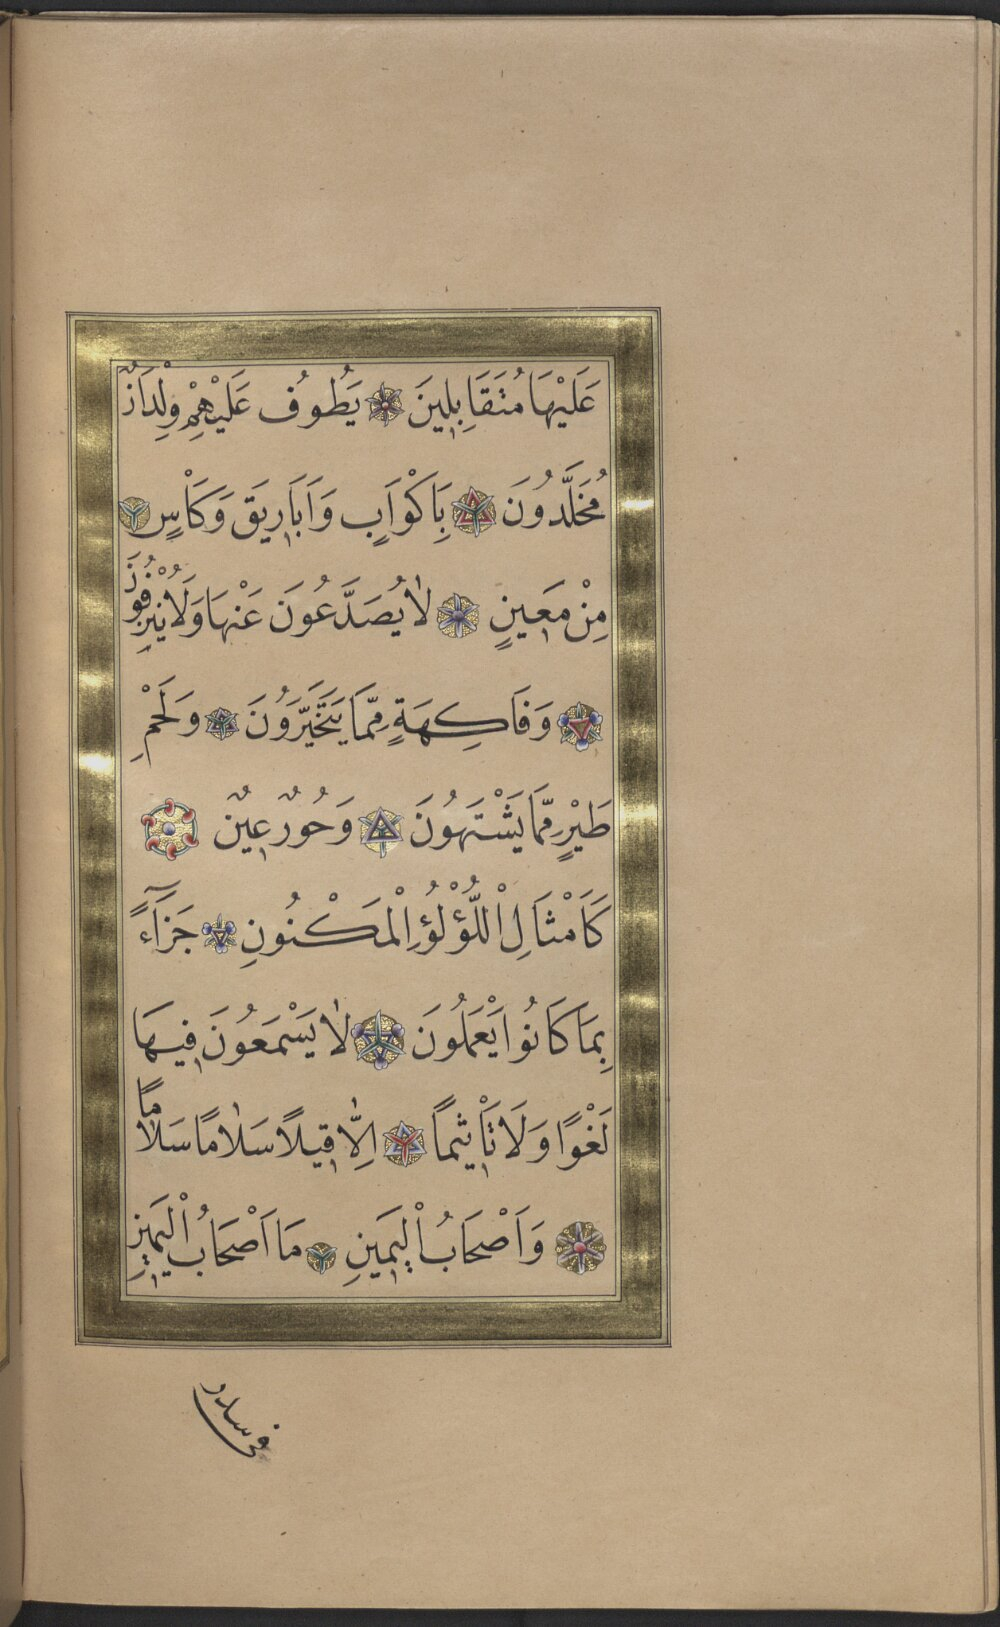 عَلَيْهَا مُتَقَابِلِينَ يَطُوفُ عَلَيْهِمْ وِلْدَانٌ
مُخَلَّدُونَ بِاَكْوَابٍ وَاَبَارِيقَ وَكَاْسٍ
مِنْ مَعِينٍ لَا يُصَدَّعُونَ عَنْهَا وَلَا يُنْزِفُونَ
وَفَاكِهَةٍ مِمَّا يَتَخَيَّرُونَ وَلَحْمِ
طَيْرٍ مِمَّا يَشْتَهُونَ وَحُورٌ عِينٌ
كَاَمْثَالِ اللُّؤْلُؤِ الْمَكْنُونِ جَزَآءً
بِمَا كَانُوا يَعْمَلُونَ لَا يَسْمَعُونَ فِيهَا
لَغْوًا وَلَا تَاْثِيمًا اِلَّا قِيلًا سَلَامًا سَلَامًا
وَاَصْحَابُ الْيَمِينِ مَا اَصْحَابُ الْيَمِينِ
فى سدر